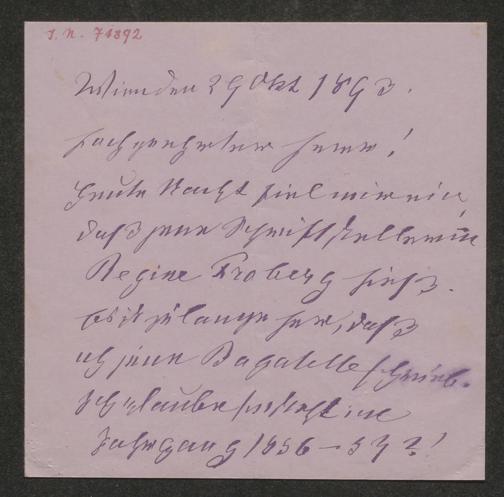 I. N. 71892
Wien den 29 Okt 1893.
Hochgeehrter Herr!
Heute Nacht fiel mir ein,
daß jene Schriftstellerin
Regine Froberg hieß.
Es ist zu lange her, daß
ich jene Bagatelle schrieb.
Ich glaube
Jahrgang 1856 – 57?!